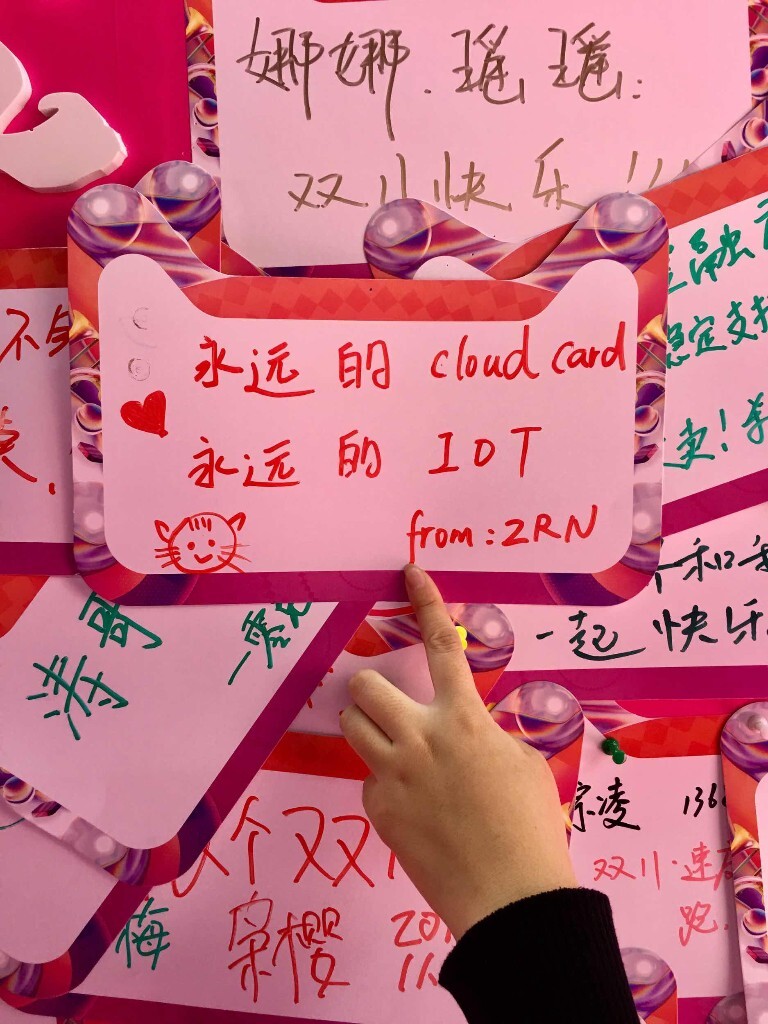 娜娜.瑶瑶:
双11快乐!!!
永远的 cloud card
永远的 IOT
from: ZRN
金融
稳定支持
卖!
一起快乐
涛哥
一零
个双1
宗凌 136
双11·速
跑.
梅
樱
201
11.